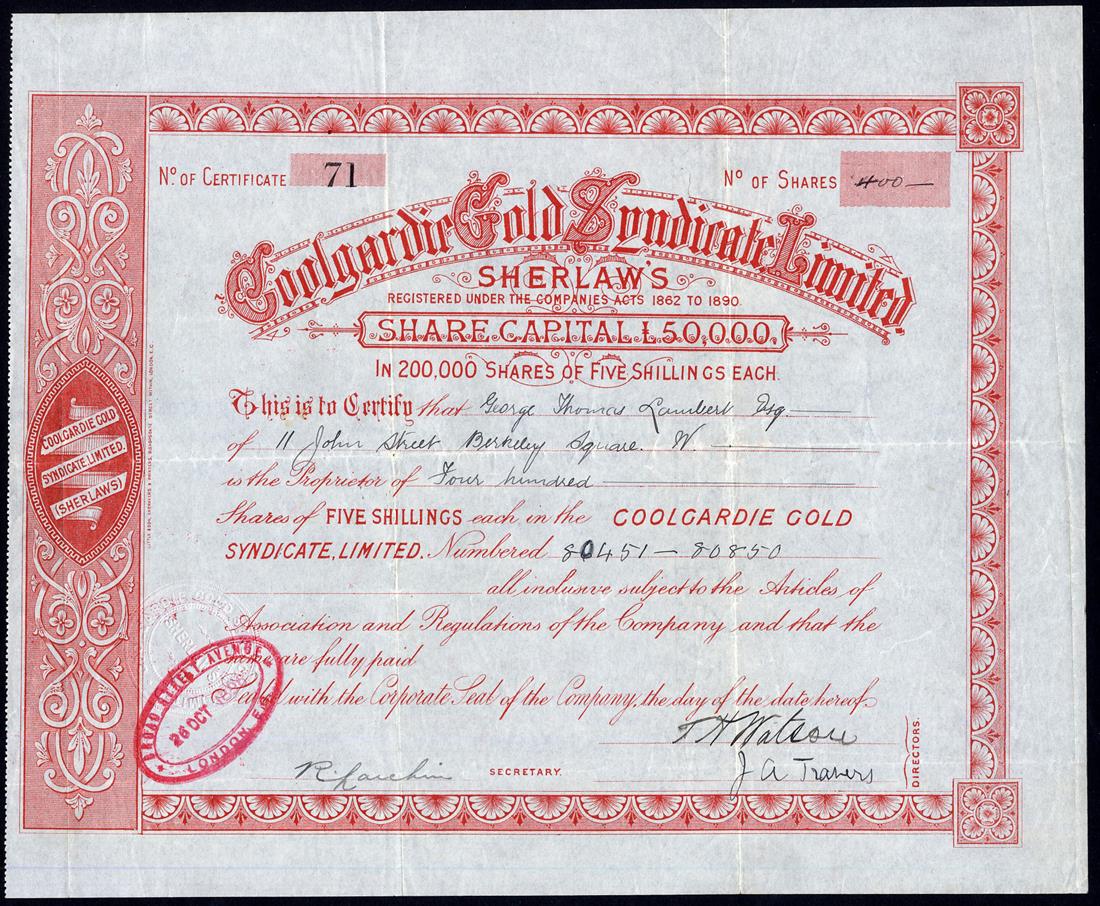 No. OF CERTIFICATE 71
No. OF SHARES 400 —
Coolgardie Gold Syndicate Limited.
SHERLAW'S
REGISTERED UNDER THE COMPANIES ACTS 1862 TO 1890.
SHARE CAPITAL £50,000.
IN 200,000 SHARES OF FIVE SHILLINGS EACH.
This is to Certify that George Thomas Lambert Esq.
of 11 John Street Berkeley Square. W.
is the Proprietor of Four hundred
Shares of FIVE SHILLINGS each in the COOLGARDIE GOLD
SYNDICATE, LIMITED. Numbered 80451 — 80850
all inclusive subject to the Articles of
Association and Regulations of the Company and that the
same are fully paid
Sealed with the Corporate Seal of the Company, the day of the date hereof.
T H Watson
J A Travers
DIRECTORS.
SECRETARY.
COOLGARDIE GOLD
SYNDICATE LIMITED.
(SHERLAWS)
BROAD STREET AVENUE
26 OCT
LONDON. E.C.